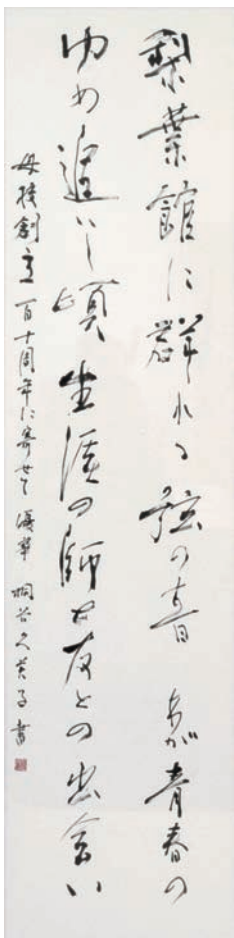 梨葉館に群れる弦の音 わが青春の
ゆめ追いし頃 生涯の師と友との出会い
母校創立百十周年に寄せて 桐谷久美子 書